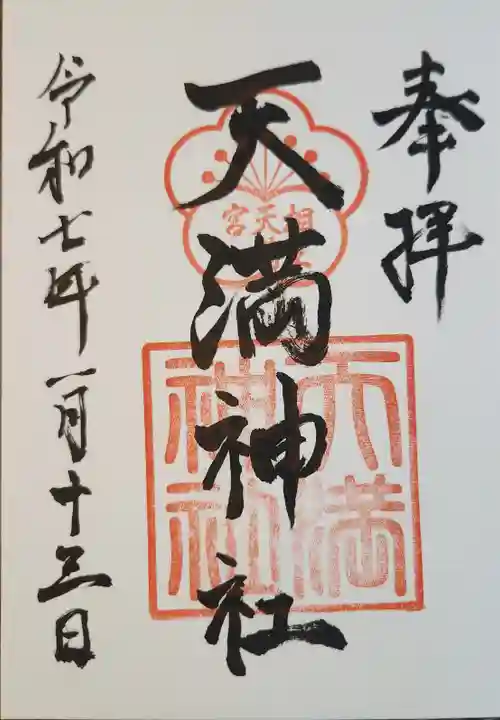 奉拝
天満神社
相天宮
天満
神社
令和七年一月十三日